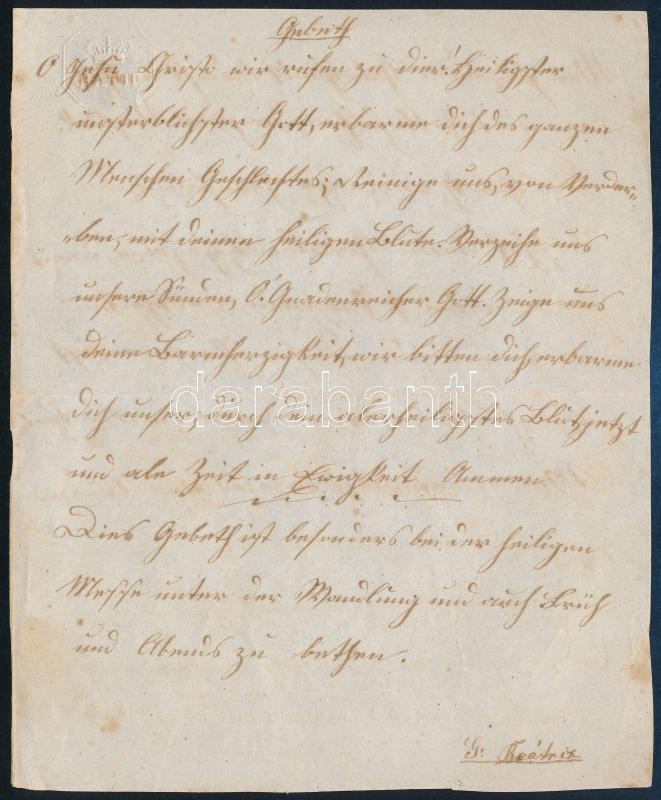 Gebeth
O Jesu Christo wir rufen zu dier! Heiligster
unsterblichster Gott, erbarme dich des ganzen
Menschen Geschlechtes; Reinige uns, von Verder-
-ben, mit deinen heiligen Blute. Verzeihe uns
unsere Sünden, O! Gnadenreicher Gott. Zeige uns
deine Barmherzigkeit, wir bitten dich, erbarme
dich unser, durch dein alerheiligstes Blut, jetzt
und ale Zeit in Ewigkeit Ammen
Dies Gebeth ist besonders bei der heiligen
Messe unter der Wandlung und auch Früh
und Abends zu bethen.
G: Beátrix
darabanth